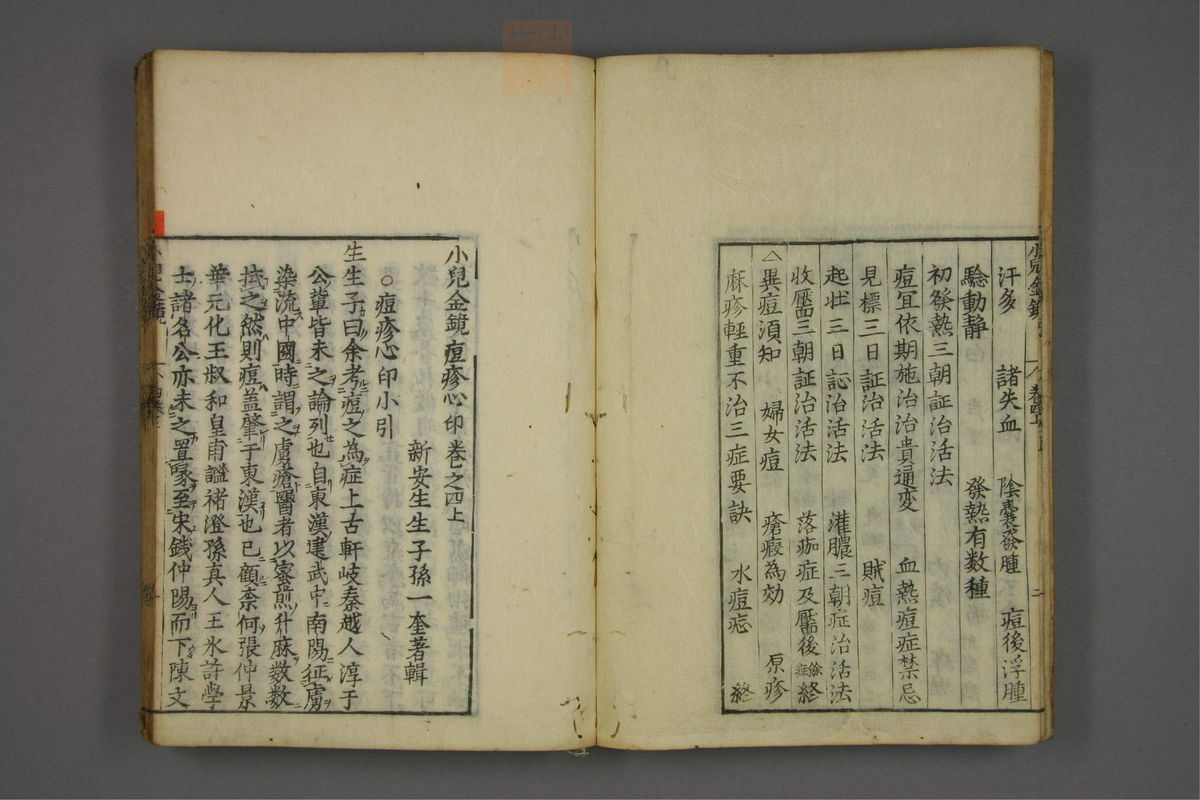 汗多　諸失血　陰囊發腫　痘後浮腫
驗動静　發熱有数種
初發熱三朝証治活法
痘宜依期施治治貴通变　血熱痘症禁忌
見標三日証治活法　賊痘
起状三日証治活法　灌膿三朝症治活法
收靨三朝証治活法　落痂症及靨後餘症　終
△異痘須知　婦女痘　瘡瘕為効　原疹
麻疹輕重不治三症要訣　水痘
小兒金鏡痘疹心印卷之四上
新安生生子孫一奎著輯
○痘疹心印小引
生生子曰余考痘之為症上古軒岐秦越人淳于
公輩皆未之論列也自東漢建武中南陽征虜
染流中國時謂之虜瘡醫者以蜜煎升麻数数
拭之然則痘盖肇于東漢也已顧柰何張仲景
華元化王叔和皇甫謐褚澄孫真人王氷許學
士諸名公亦未之置喙至宋錢仲陽而下陳文